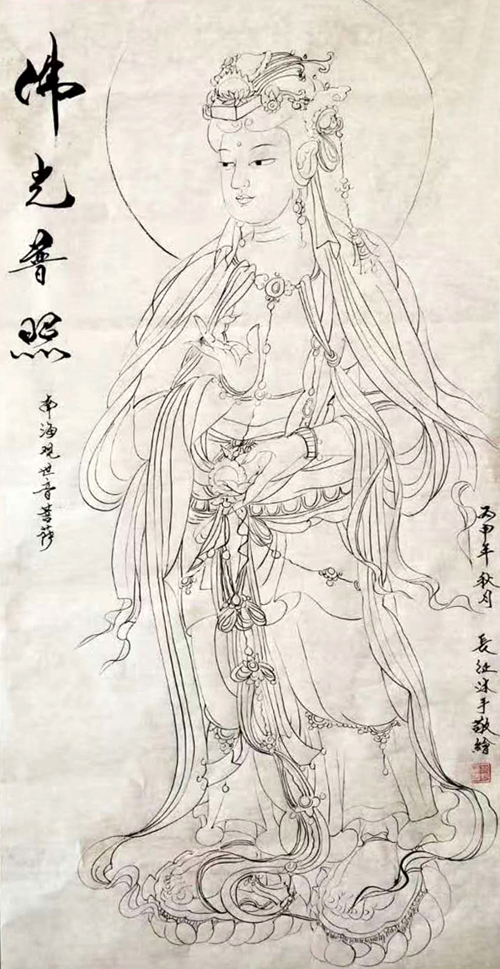 佛光普照
南海观世音菩萨
丙申年秋月 長征沐手敬繪